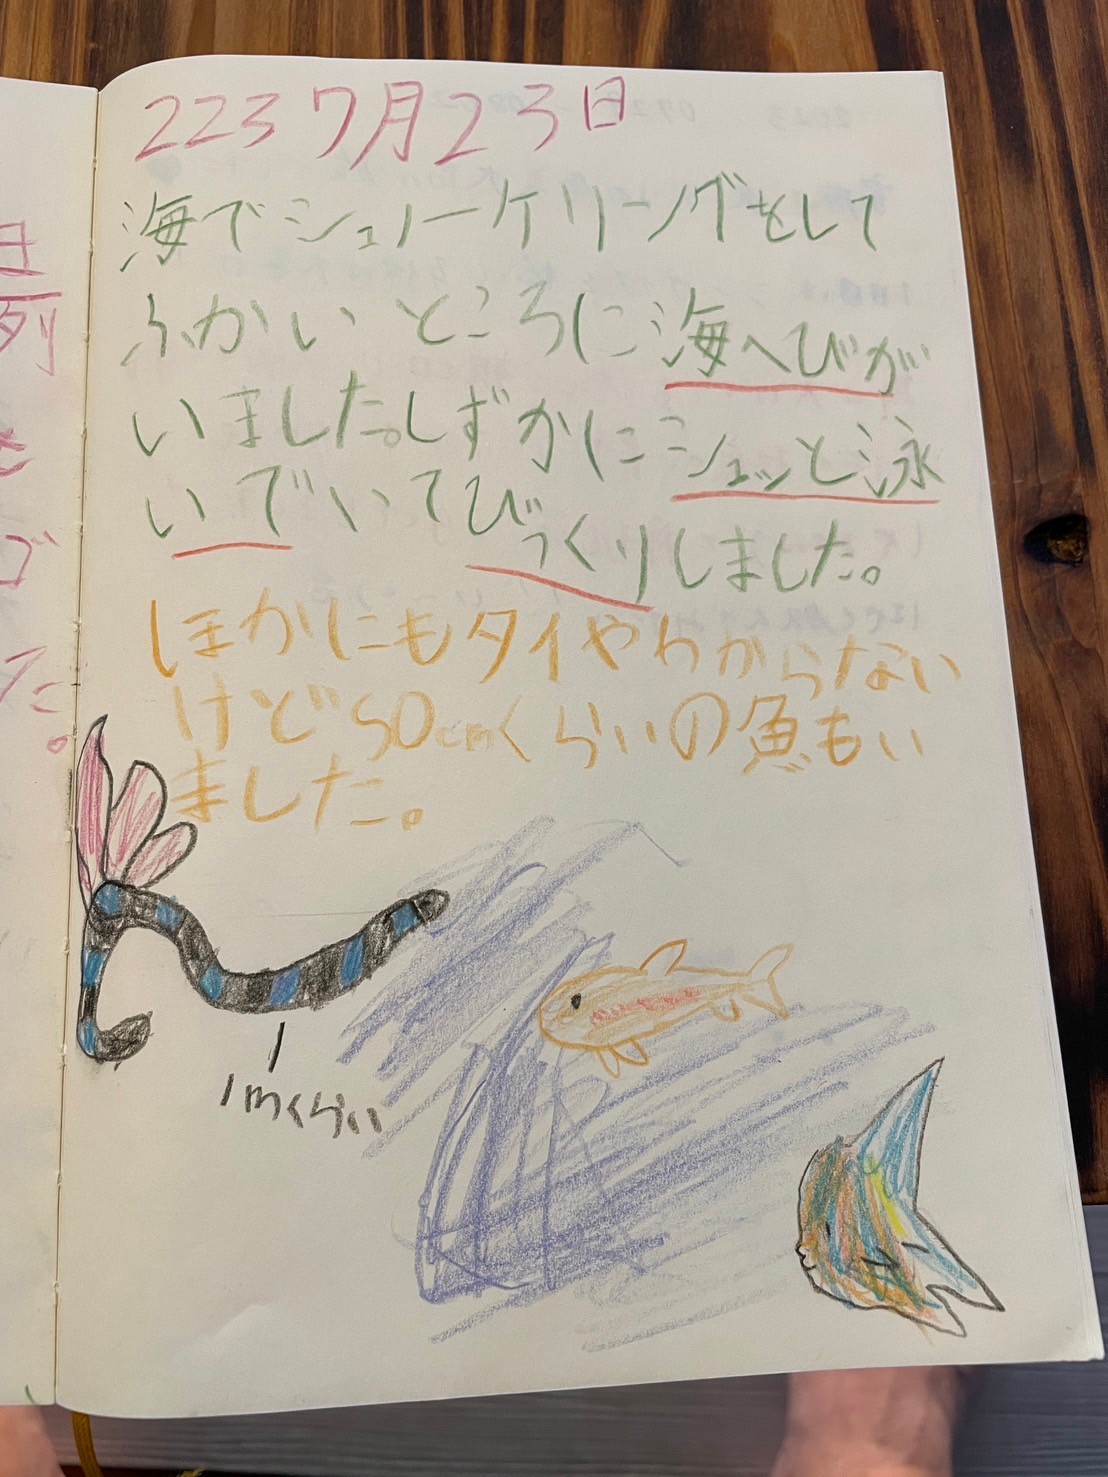 223 7月23日
海でシュノーケリングをして
ふかいところに海へびが
いました。しずかにシュッと泳
いでいてびっくりしました。
ほかにもタイやわからない
けど50cmくらいの魚もい
ました。
1mくらい